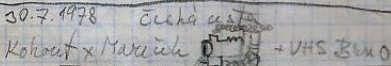 30.7.1978 Česká ústa
Kohout x Mareček + VHS Brno